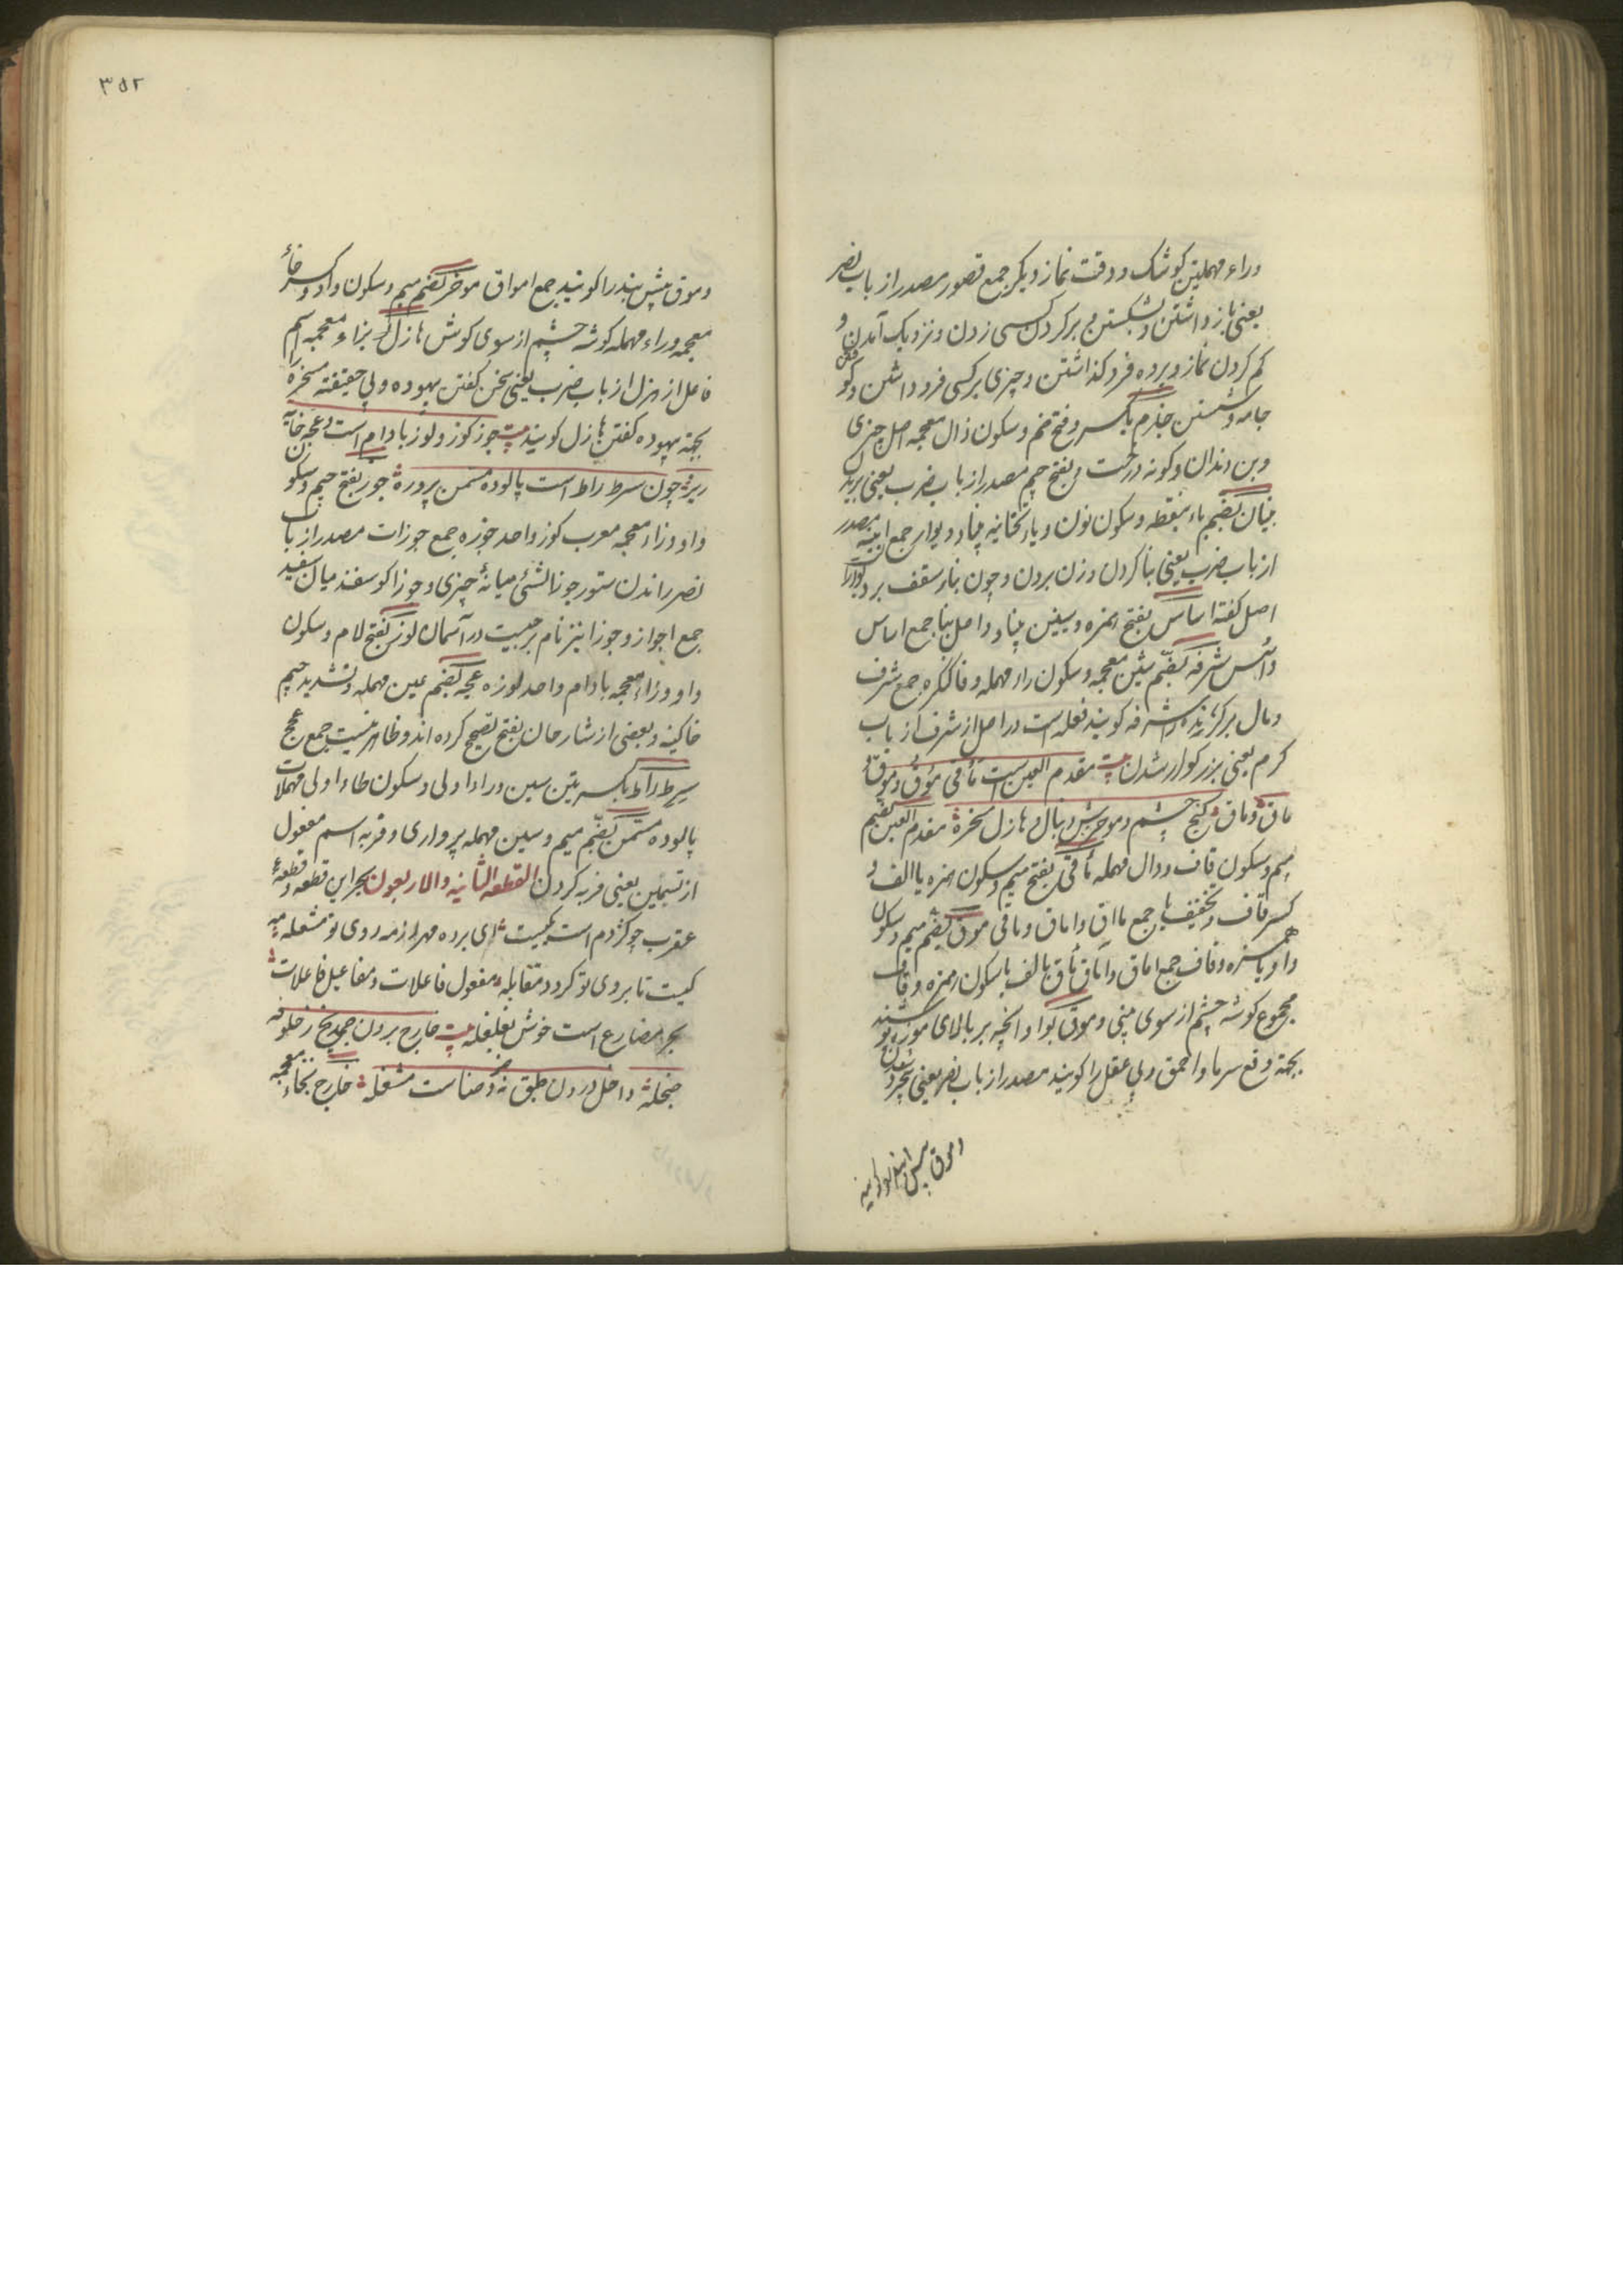 وراء مهملتین کوشک و وقت نماز دیکر جمع قصور مصدر از باب نصر
یعنی باز داشتن و شکستن و بر کردن کسی زدن و نزدیک آمدن و
کم کردن نماز و پرده فرو کذاشتن و چیزی بر کسی فرود داشتن و کو
جامه شستن جذم بکسر و فتح جیم و سکون ذال معجمه اصل چیزی
و بن دندان و کونه درخت و بفتح جیم مصدر از باب ضرب یعنی بریدن
بنیان بضم باء بنقطه و سکون نون و یاء تحتانیه بنیاد و دیوار جمع ابنیه مصدر
از باب ضرب یعنی بنا کردن و زن بردن و چون بناء سقف بر دیوار
اصل کفته اساس بفتح همزه و سین بنیاد و اصل بنا جمع اساس
و اسس شرفه بضم شین معجمه و سکون راء مهمله و فا کنکره جمع شرف
و مال برکزیده را شرفه کویند فعله است در اصل از شرف از باب
کرم یعنی بزرکوار شدن مقدم العین است مأقی مؤق و موق
ماق و ماق کنج چشم و موخرش دنبال و هازل سخره مقدم العین بضم
میم و سکون قاف و دال مهمله مأقی بفتح میم و سکون همزه یا الف و
کسر قاف و تخفیف یا جمع مااق و اماق و ماقی موق بضم میم و سکون
واو یا همزه و قاف جمع اماق و آماق مأق بالف یا سکون همزه و قاف
مجموع کوشه چشم از سوی بینی و موق بواو آنچه بر بالای موزه پوشند
بجهة دفع سرما و احمق و بی عقل را کویند مصدر از باب نصر یعنی بیخرد شدن
و موق پیش بند را کویند
۳۵۲
و موق پیش بند را کویند جمع امواق موخر بضم میم و سکون واو و کسر خاء
معجمه و راء مهمله کوشه چشم از سوی کوش هازل بزاء معجمه اسم
فاعل از هزل از باب ضرب یعنی سخن کفتن بیهوده و بی حقیقته مسخره را
بجهة بیهوده کفتن هازل کویند جوز کوز و لوز بادام است و عجه خایه
ریزه چون سرطراط است پالوده مسمن پروره جوز بفتح جیم و سکون
واو و زاء معجمه معرب کوز واحد جوزه جمع جوزات مصدر از باب
نصر راندن ستور جوز الشئ میانهٔ چیزی و جوزا کوسفند میان سفید
جمع اجواز و جوزا نیز نام برجیست در آسمان لوز بفتح لام و سکون
واو و زاء معجمه بادام واحد لوزه عجه بضم عین مهمله و تشدید جیم
خاکینه و بعضی از شارحان بفتح تصحیح کرده اند و ظاهر نیست جمع عجج
سرطراط بکسرتین سین و راء اولی و سکون طاء اولی مهملات
پالوده مسمن بضم میم و سین مهمله پرواری و فربه اسم مفعول
از تسمین یعنی فربه کردن القطعه الثانیه والاربعون بحر این قطعه و قطعهٔ
عقرب چو کژدم است یکیست ای برده مهر از مه روی تو مشعله
کیست تا بروی تو کردد مقابله مفعول فاعلات و مفاعیل فاعلات
بحر مضارع است خوش بغلغله خارج برون رخلوفه
ضحله داخل درون طبق نه و صناست مشغله خارج بخاء معجمه